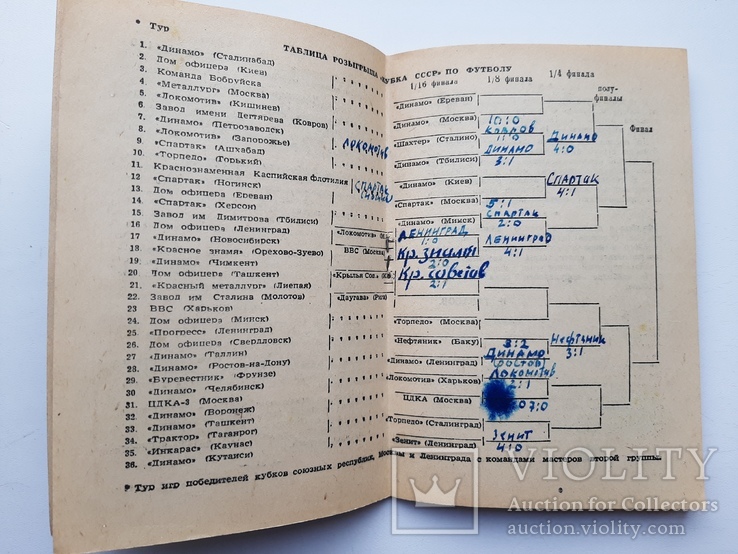 * Тур
ТАБЛИЦА РОЗЫГРЫША «КУБКА СССР» ПО ФУТБОЛУ
1. «Динамо» (Сталинабад)
2. Дом офицера (Киев)
3. Команда Бобруйска
4. «Металлург» (Москва)
5. «Локомотив» (Кишинев)
6. Завод имени Дегтярева (Ковров)
7. «Динамо» (Петрозаводск)
8. «Локомотив» (Запорожье)
9. «Спартак» (Ашхабад)
10. «Торпедо» (Горький)
11. Краснознаменная Каспийская Флотилия
12. «Спартак» (Ногинск)
13. Дом офицера (Ереван)
14. «Спартак» (Херсон)
15. Завод им Димитрова (Тбилиси)
16. Дом офицера (Ленинград)
17. «Динамо» (Новосибирск)
18. «Красное знамя» (Орехово-Зуево)
19. «Динамо» (Чимкент)
20. Дом офицера (Ташкент)
21. «Красный металлург» (Лиепая)
22. Завод им Сталина (Молотов)
23. ВВС (Харьков)
24. Дом офицера (Минск)
25. «Прогресс» (Ленинград)
26. Дом офицера (Свердловск)
27. «Динамо» (Таллин)
28. «Динамо» (Ростов-на-Дону)
29. «Буревестник» (Фрунзе)
30. «Динамо» (Челябинск)
31. ЦДКА-3 (Москва)
32. «Динамо» (Воронеж)
33. «Динамо» (Ташкент)
34. «Трактор» (Таганрог)
35. «Инкарас» (Каунас)
36. «Динамо» (Кутаиси)
* Тур игр победителей кубков союзных республик, Москвы и Ленинграда с командами мастеров второй группы.
ЛОКОМОТИВ
СПАРТАК
«Локомотив»
ВВС (Москва)
«Крылья Сов.»
«Даугава» (Рига)
1/16 финала
1/8 финала
1/4 финала
полу-
финалы
Финал
«Динамо» (Ереван)
«Динамо» (Москва)
10:0
КОВРОВ
«Шахтер» (Сталино)
1:0
ДИНАМО
4:0
ДИНАМО
«Динамо» (Тбилиси)
3:1
«Динамо» (Киев)
СПАРТАК
4:1
«Спартак» (Москва)
5:1
СПАРТАК
«Динамо» (Минск)
2:0
ЛЕНИНГРАД
1:0
ЛЕНИНГРАД
4:1
Кр. знамя
2:0
Кр. советов
2:1
«Торпедо» (Москва)
«Нефтяник» (Баку)
3:2
Нефтяник
3:1
ДИНАМО
«Динамо» (Ленинград)
РОСТОВ
ЛОКОМОТИВ
«Локомотив» (Харьков)
2:1
ЦДКА (Москва)
7:0
«Торпедо» (Сталинград)
ЗЕНИТ
«Зенит» (Ленинград)
4:0
VIOLITY
Auction for Collectors
auction.violity.com